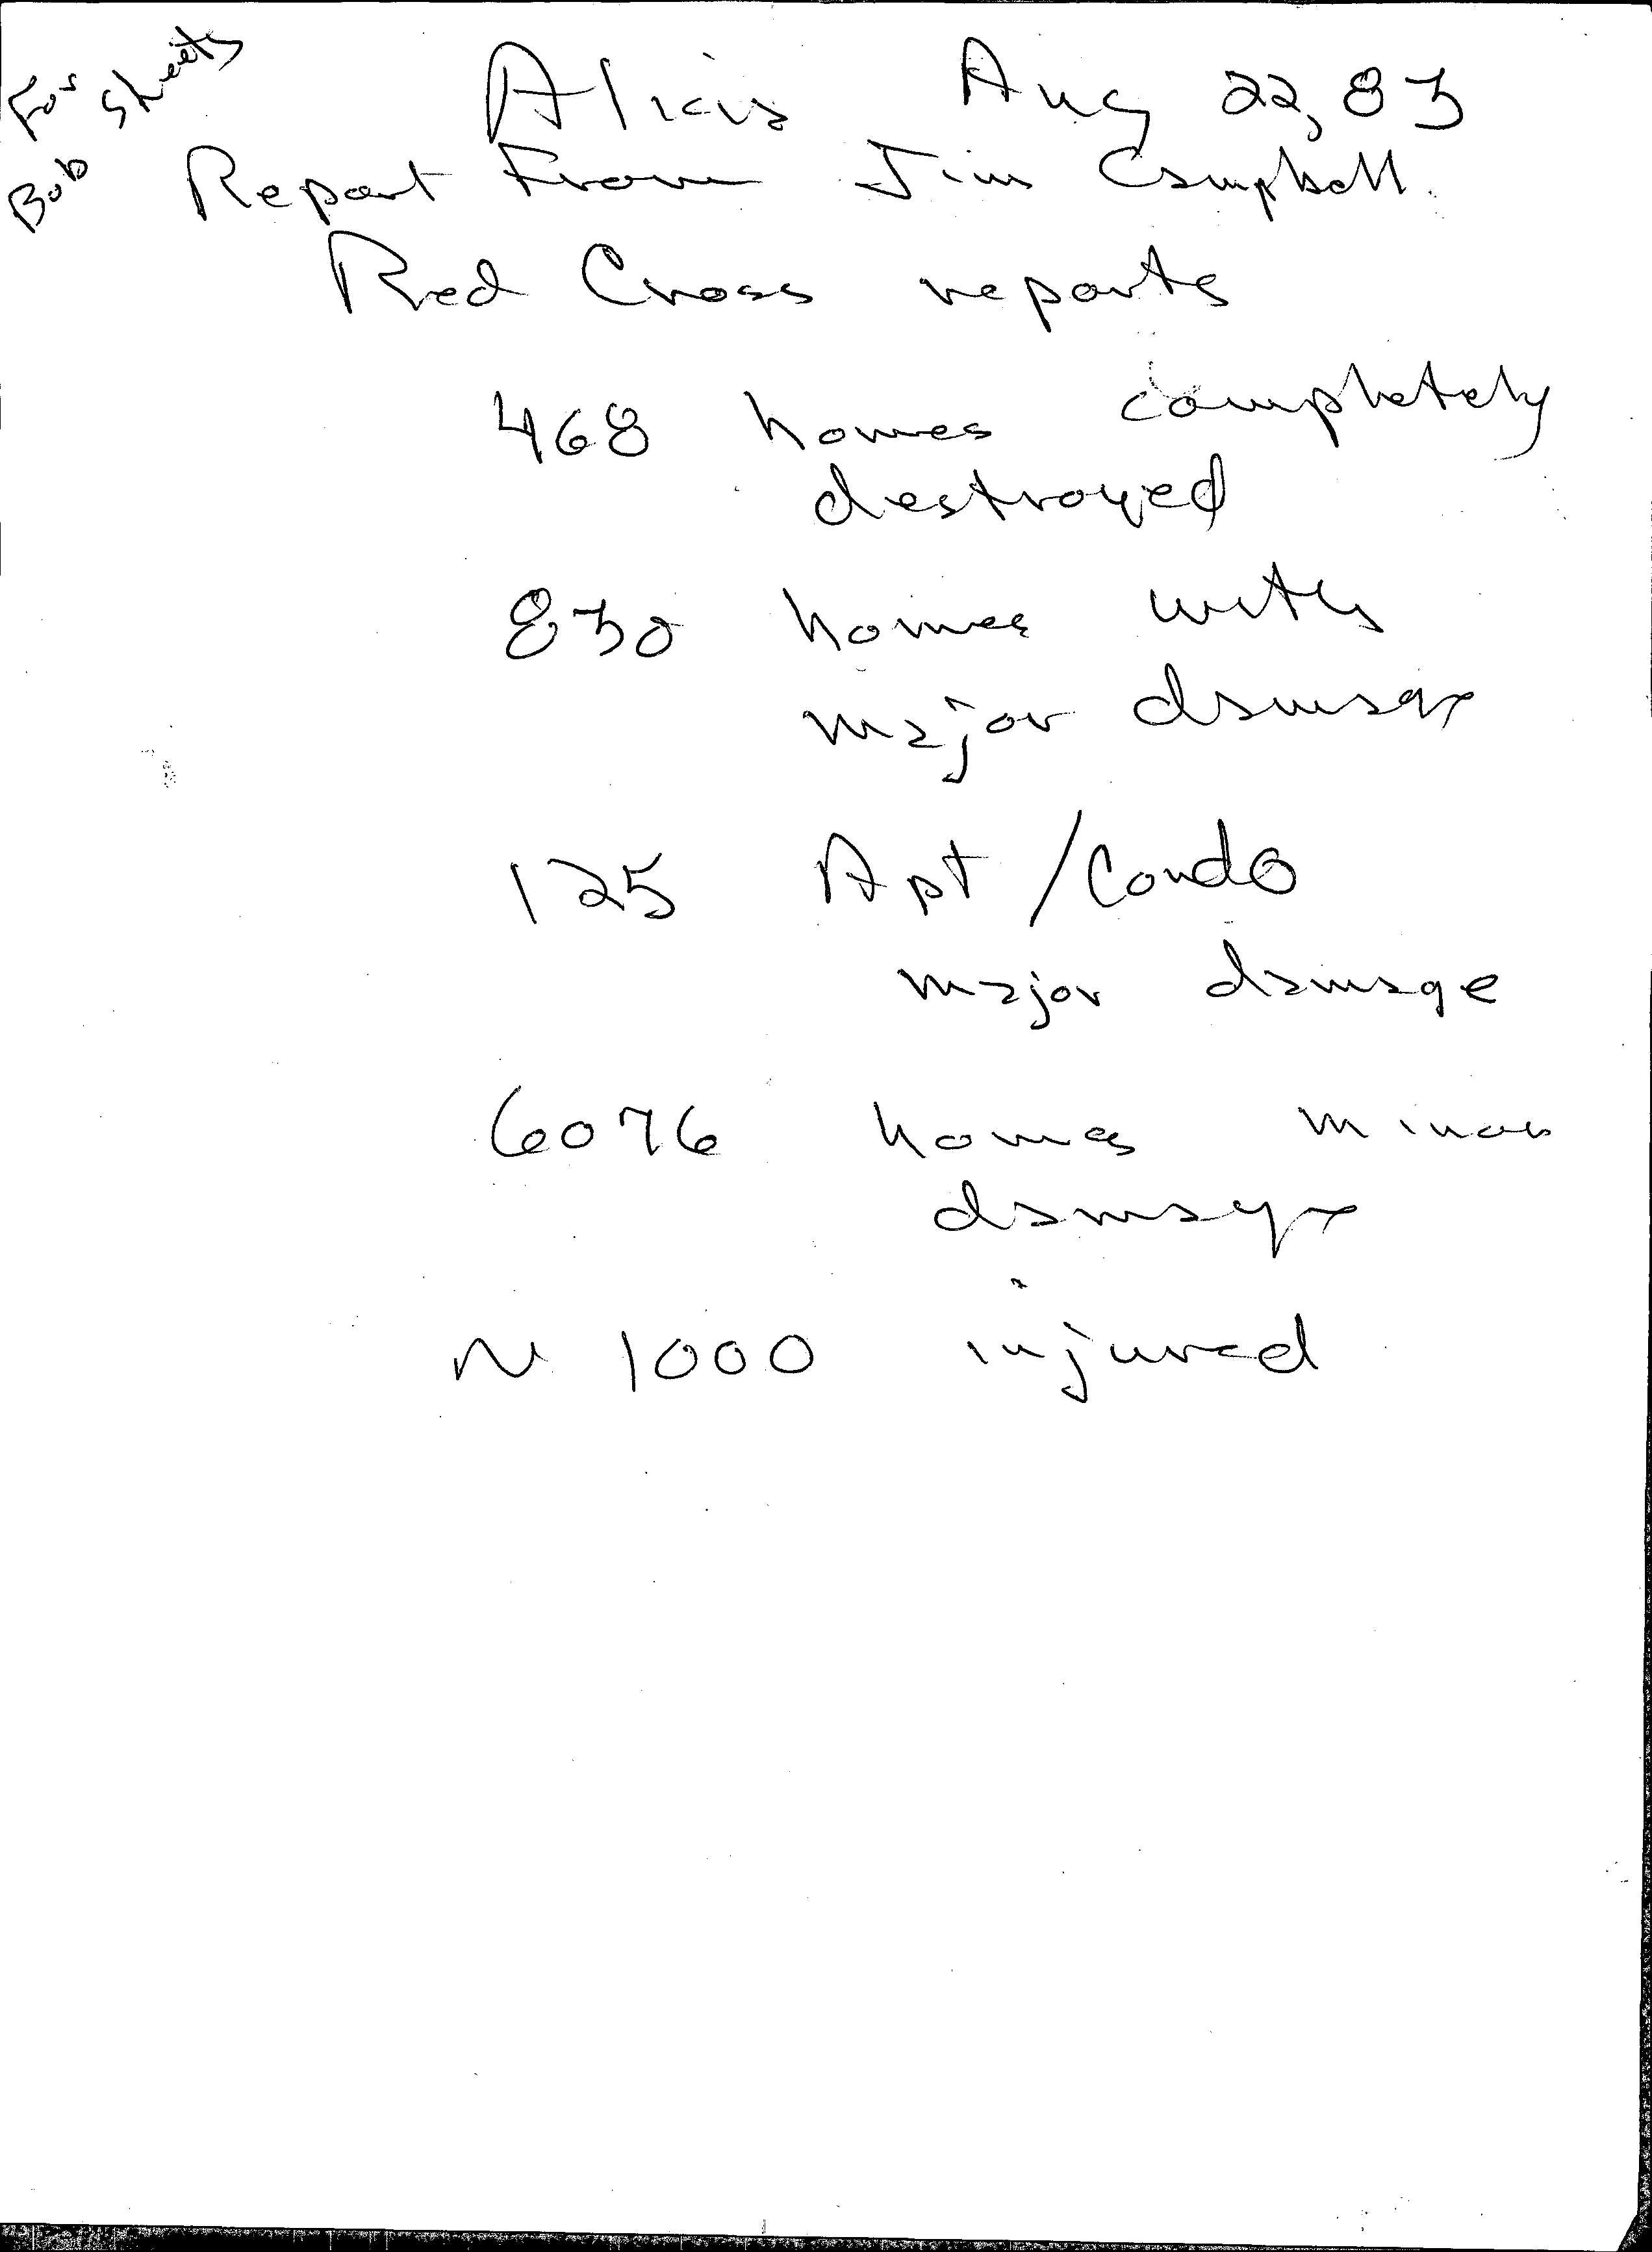 For
Bob Sheets
Alicia Aug 22, 83
Report From Jim Campbell
Red Cross reports
468 homes completely
destroyed
830 homes with
major damage
125 Apt / Condo
major damage
6076 homes minor
damage
~ 1000 injured